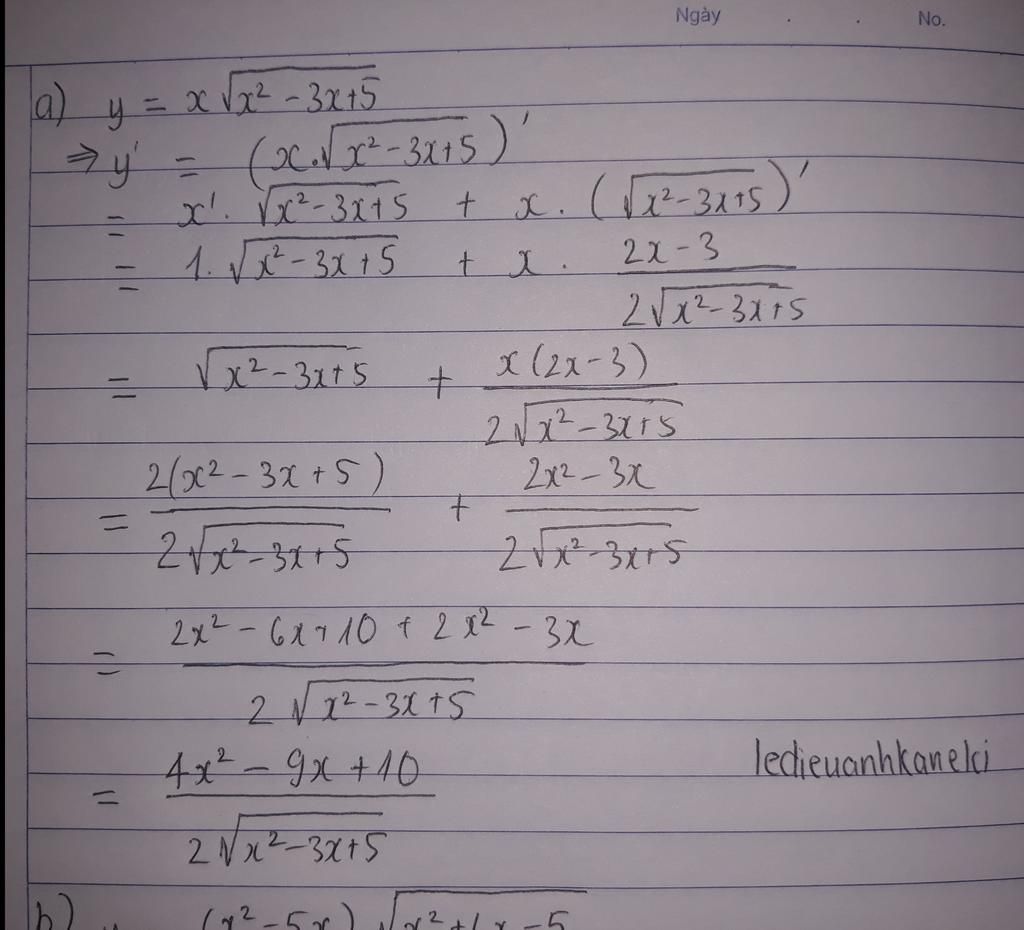 Ngày . . No.
a) y = x√(x² - 3x+5)
⇒ y' = (x.√(x² - 3x+5))'
= x'. √(x² - 3x+5) + x . (√(x² - 3x+5))'
= 1. √(x² - 3x+5) + x . (2x - 3)/(2√(x² - 3x+5))
= √(x² - 3x+5) + x(2x - 3)/(2√(x² - 3x+5))
= 2(x² - 3x + 5)/(2√(x² - 3x+5)) + (2x² - 3x)/(2√(x² - 3x+5))
= (2x² - 6x + 10 + 2x² - 3x)/(2√(x² - 3x+5))
= (4x² - 9x + 10)/(2√(x² - 3x+5))
ledieuanhkaneki
b)